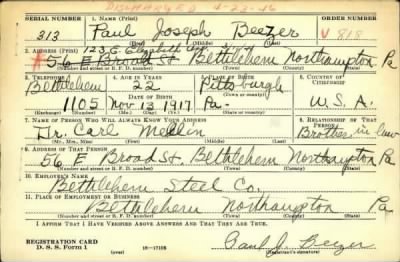 DISCHARGED 4-23-46
SERIAL NUMBER 1. NAME (Print) ORDER NUMBER
313 Paul Joseph Beezer V 818
(First) (Middle) (Last)
2. ADDRESS (Print) 123 E Elizabeth
56 E Broad St. Bethlehem Northampton Pa
(Number and street or R. F. D. number) (Town) (County) (State)
3. TELEPHONE 4. AGE IN YEARS 5. PLACE OF BIRTH 6. COUNTRY OF CITIZENSHIP
Bethlehem 22 Pittsburgh
DATE OF BIRTH (Town or county)
1105 Nov 13 1917 Pa- U.S.A.
(Exchange) (Number) (Mo.) (Day) (Yr.) (State or country)
7. NAME OF PERSON WHO WILL ALWAYS KNOW YOUR ADDRESS 8. RELATIONSHIP OF THAT PERSON
Dr. Carl Mellin Brother in law
(Mr., Mrs., Miss) (First) (Middle) (Last)
9. ADDRESS OF THAT PERSON
56 E Broad St. Bethlehem Northampton Pa
(Number and street or R. F. D. number) (Town) (County) (State)
10. EMPLOYER'S NAME
Bethlehem Steel Co.
11. PLACE OF EMPLOYMENT OR BUSINESS
Bethlehem Northampton Pa
(Number and street or R. F. D. number) (Town) (County) (State)
I AFFIRM THAT I HAVE VERIFIED ABOVE ANSWERS AND THAT THEY ARE TRUE.
REGISTRATION CARD
D. S. S. Form 1 (over) 16-17105 Paul J. Beezer
(Registrant's signature)